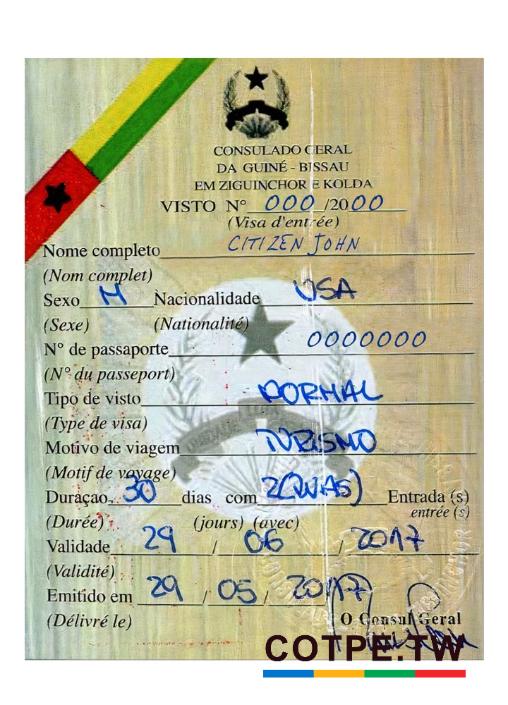 CONSULADO GERAL
DA GUINÉ - BISSAU
EM ZIGUINCHOR E KOLDA
VISTO N° 000 /2000
(Visa d'entrée)
Nome completo CITIZEN JOHN
(Nom complet)
Sexo M Nacionalidade USA
(Sexe) (Nationalité)
N° de passaporte 0000000
(N° du passeport)
Tipo de visto NORMAL
(Type de visa)
Motivo de viagem TURISMO
(Motif de voyage)
Duraçao 30 dias com 2(DUAS) Entrada (s)
(Durée) (jours) (avec) entrée (s)
Validade 29 / 06 / 2017
(Validité)
Emitido em 29 / 05 / 2017
(Délivré le) O Consul Geral
COTPE.TW